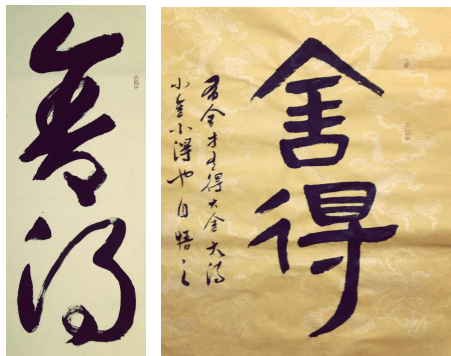 舍得
舍得
有舍才有得大舍大得
小舍小得也自悟之